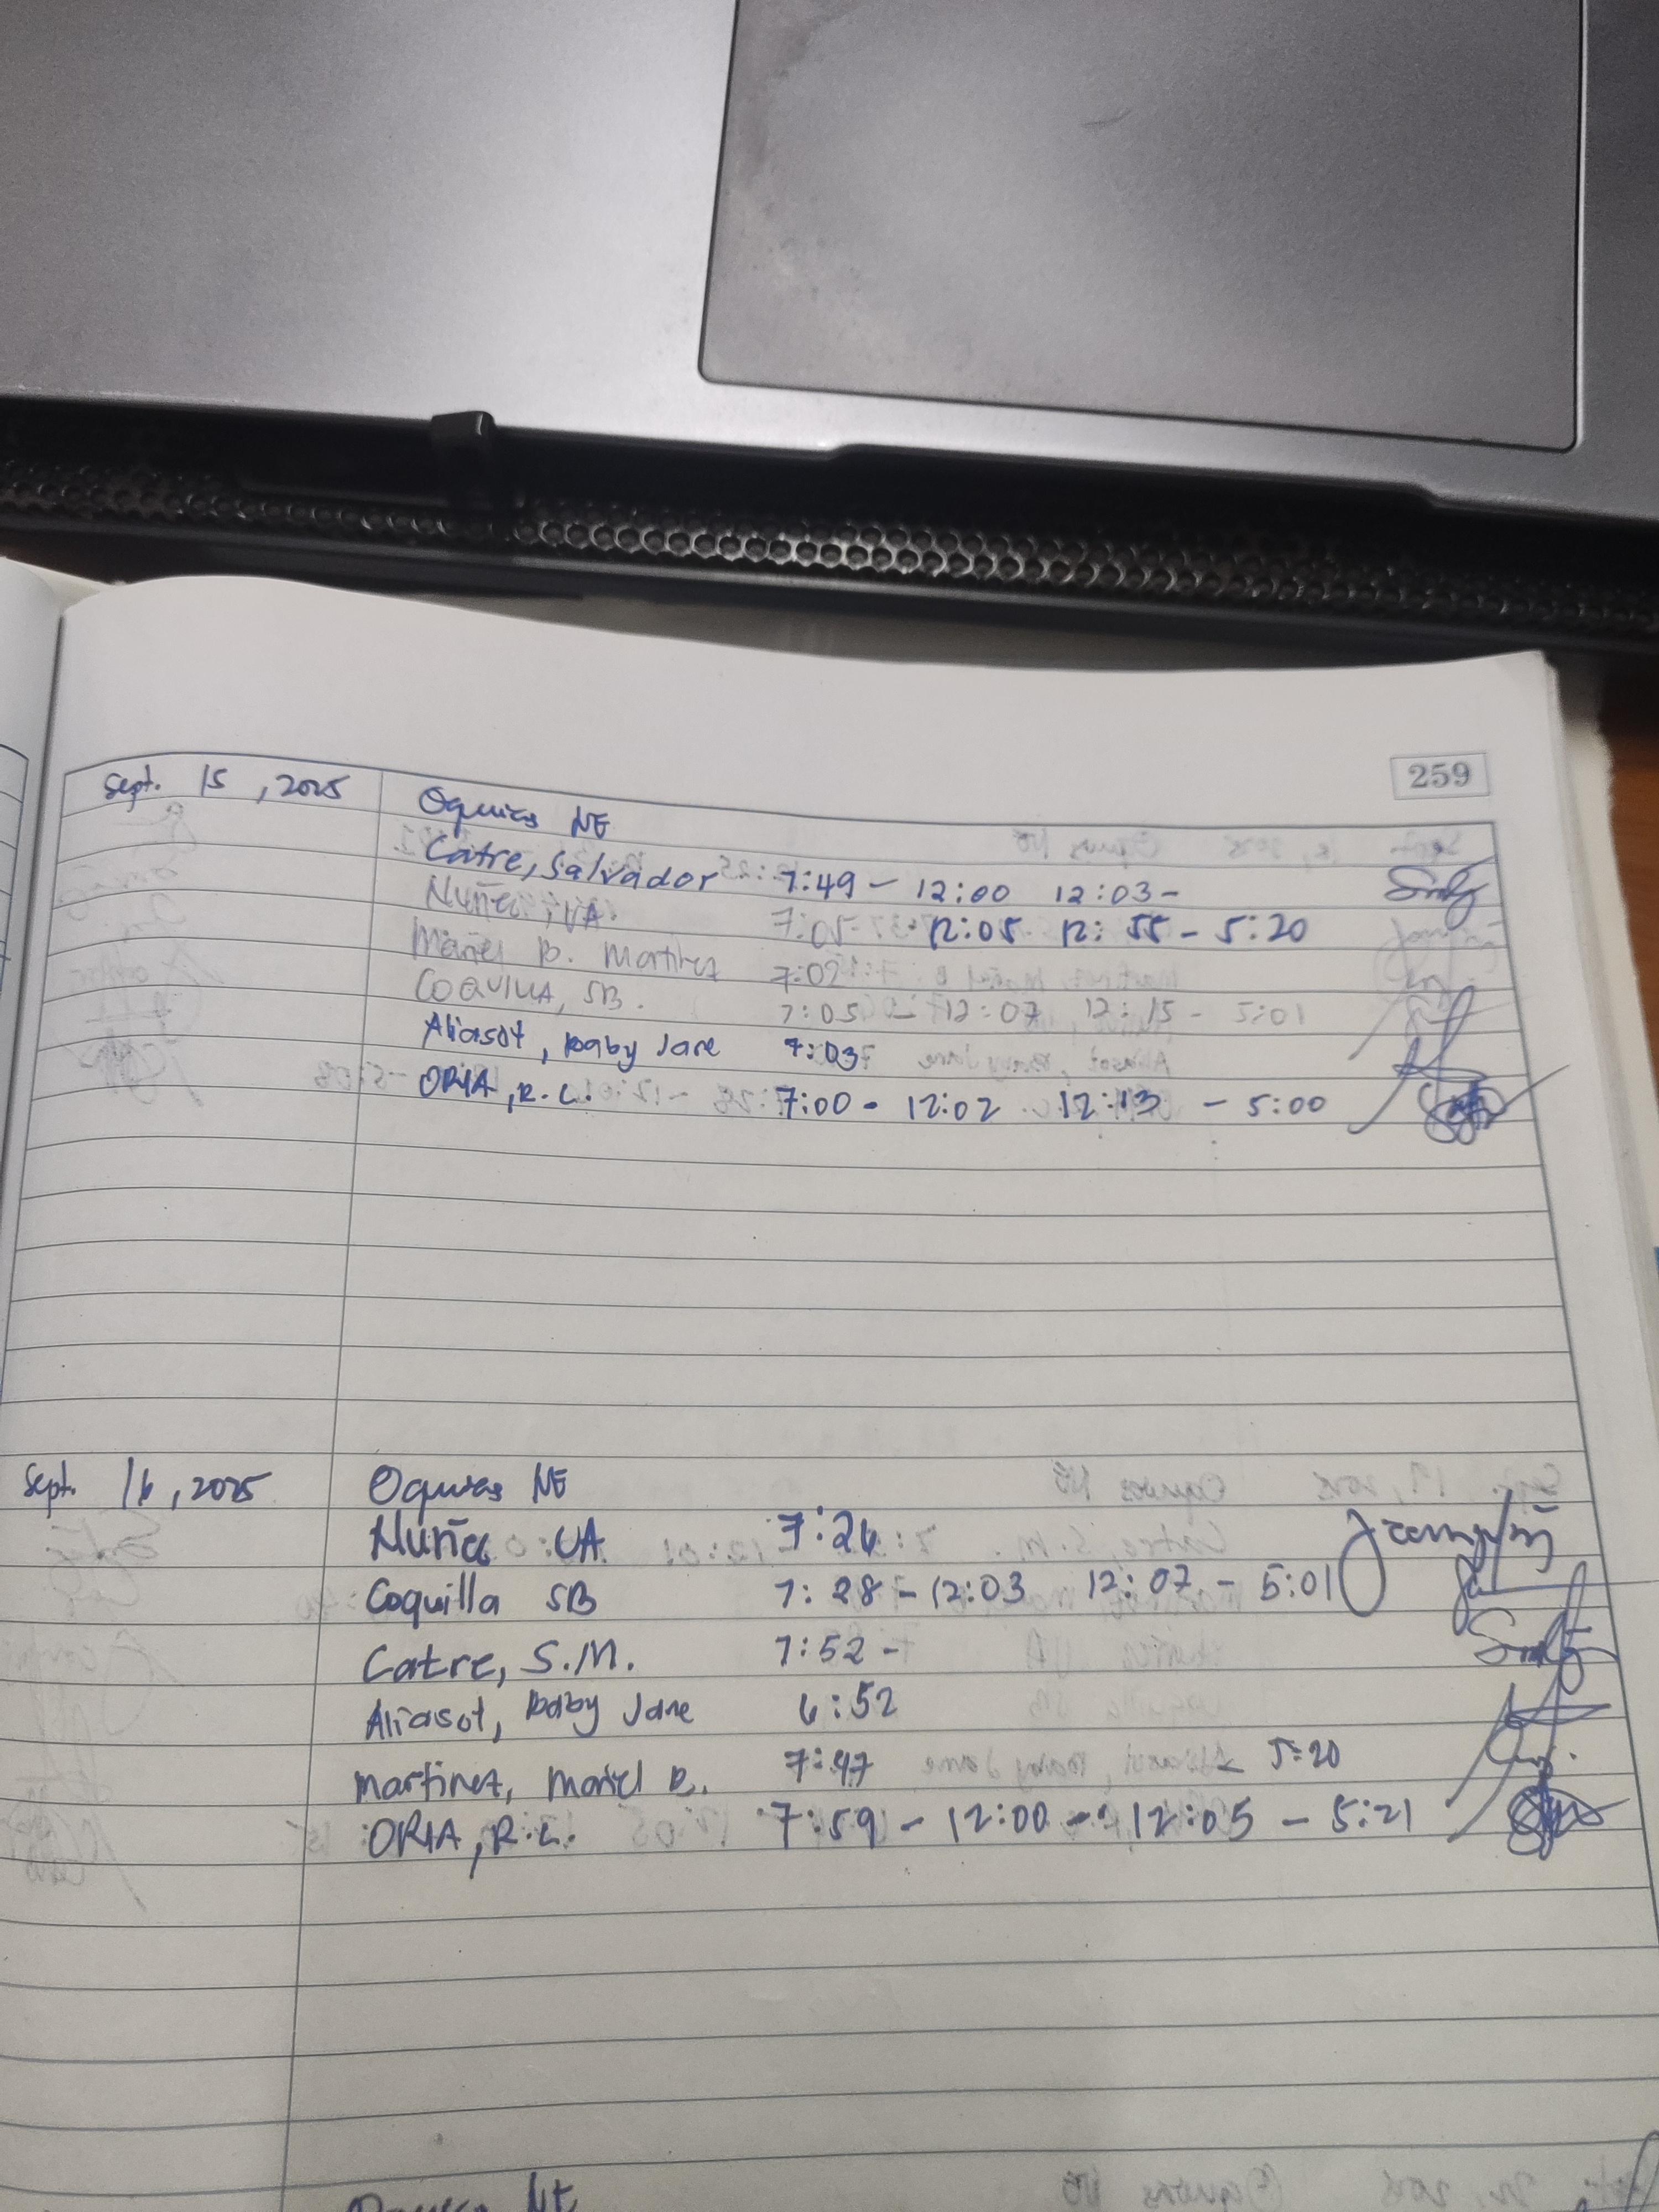 259
Sept. 15, 2025 Oquias NE
Catre, Salvador 7:49 - 12:00 12:03 -
Nuñez, UA. 7:05 - 12:05 12:55 - 5:20
Mariel B. Martinez 7:02
COQUILLA, SB. 7:05 - 12:07 12:15 - 5:01
Aliasot, Baby Jane 7:03
ORIA, R.L. 7:00 - 12:02 12:13 - 5:00
Sept. 16, 2025 Oquias NE
Nuñez UA 7:26
Coquilla SB 7:28 - 12:03 12:07 - 5:01
Catre, S.M. 7:52 -
Aliasot, Baby Jane 6:52
Martinez, Mariel B. 7:47 - 5:20
ORIA, R.L. 7:59 - 12:00 - 12:05 - 5:21
NE